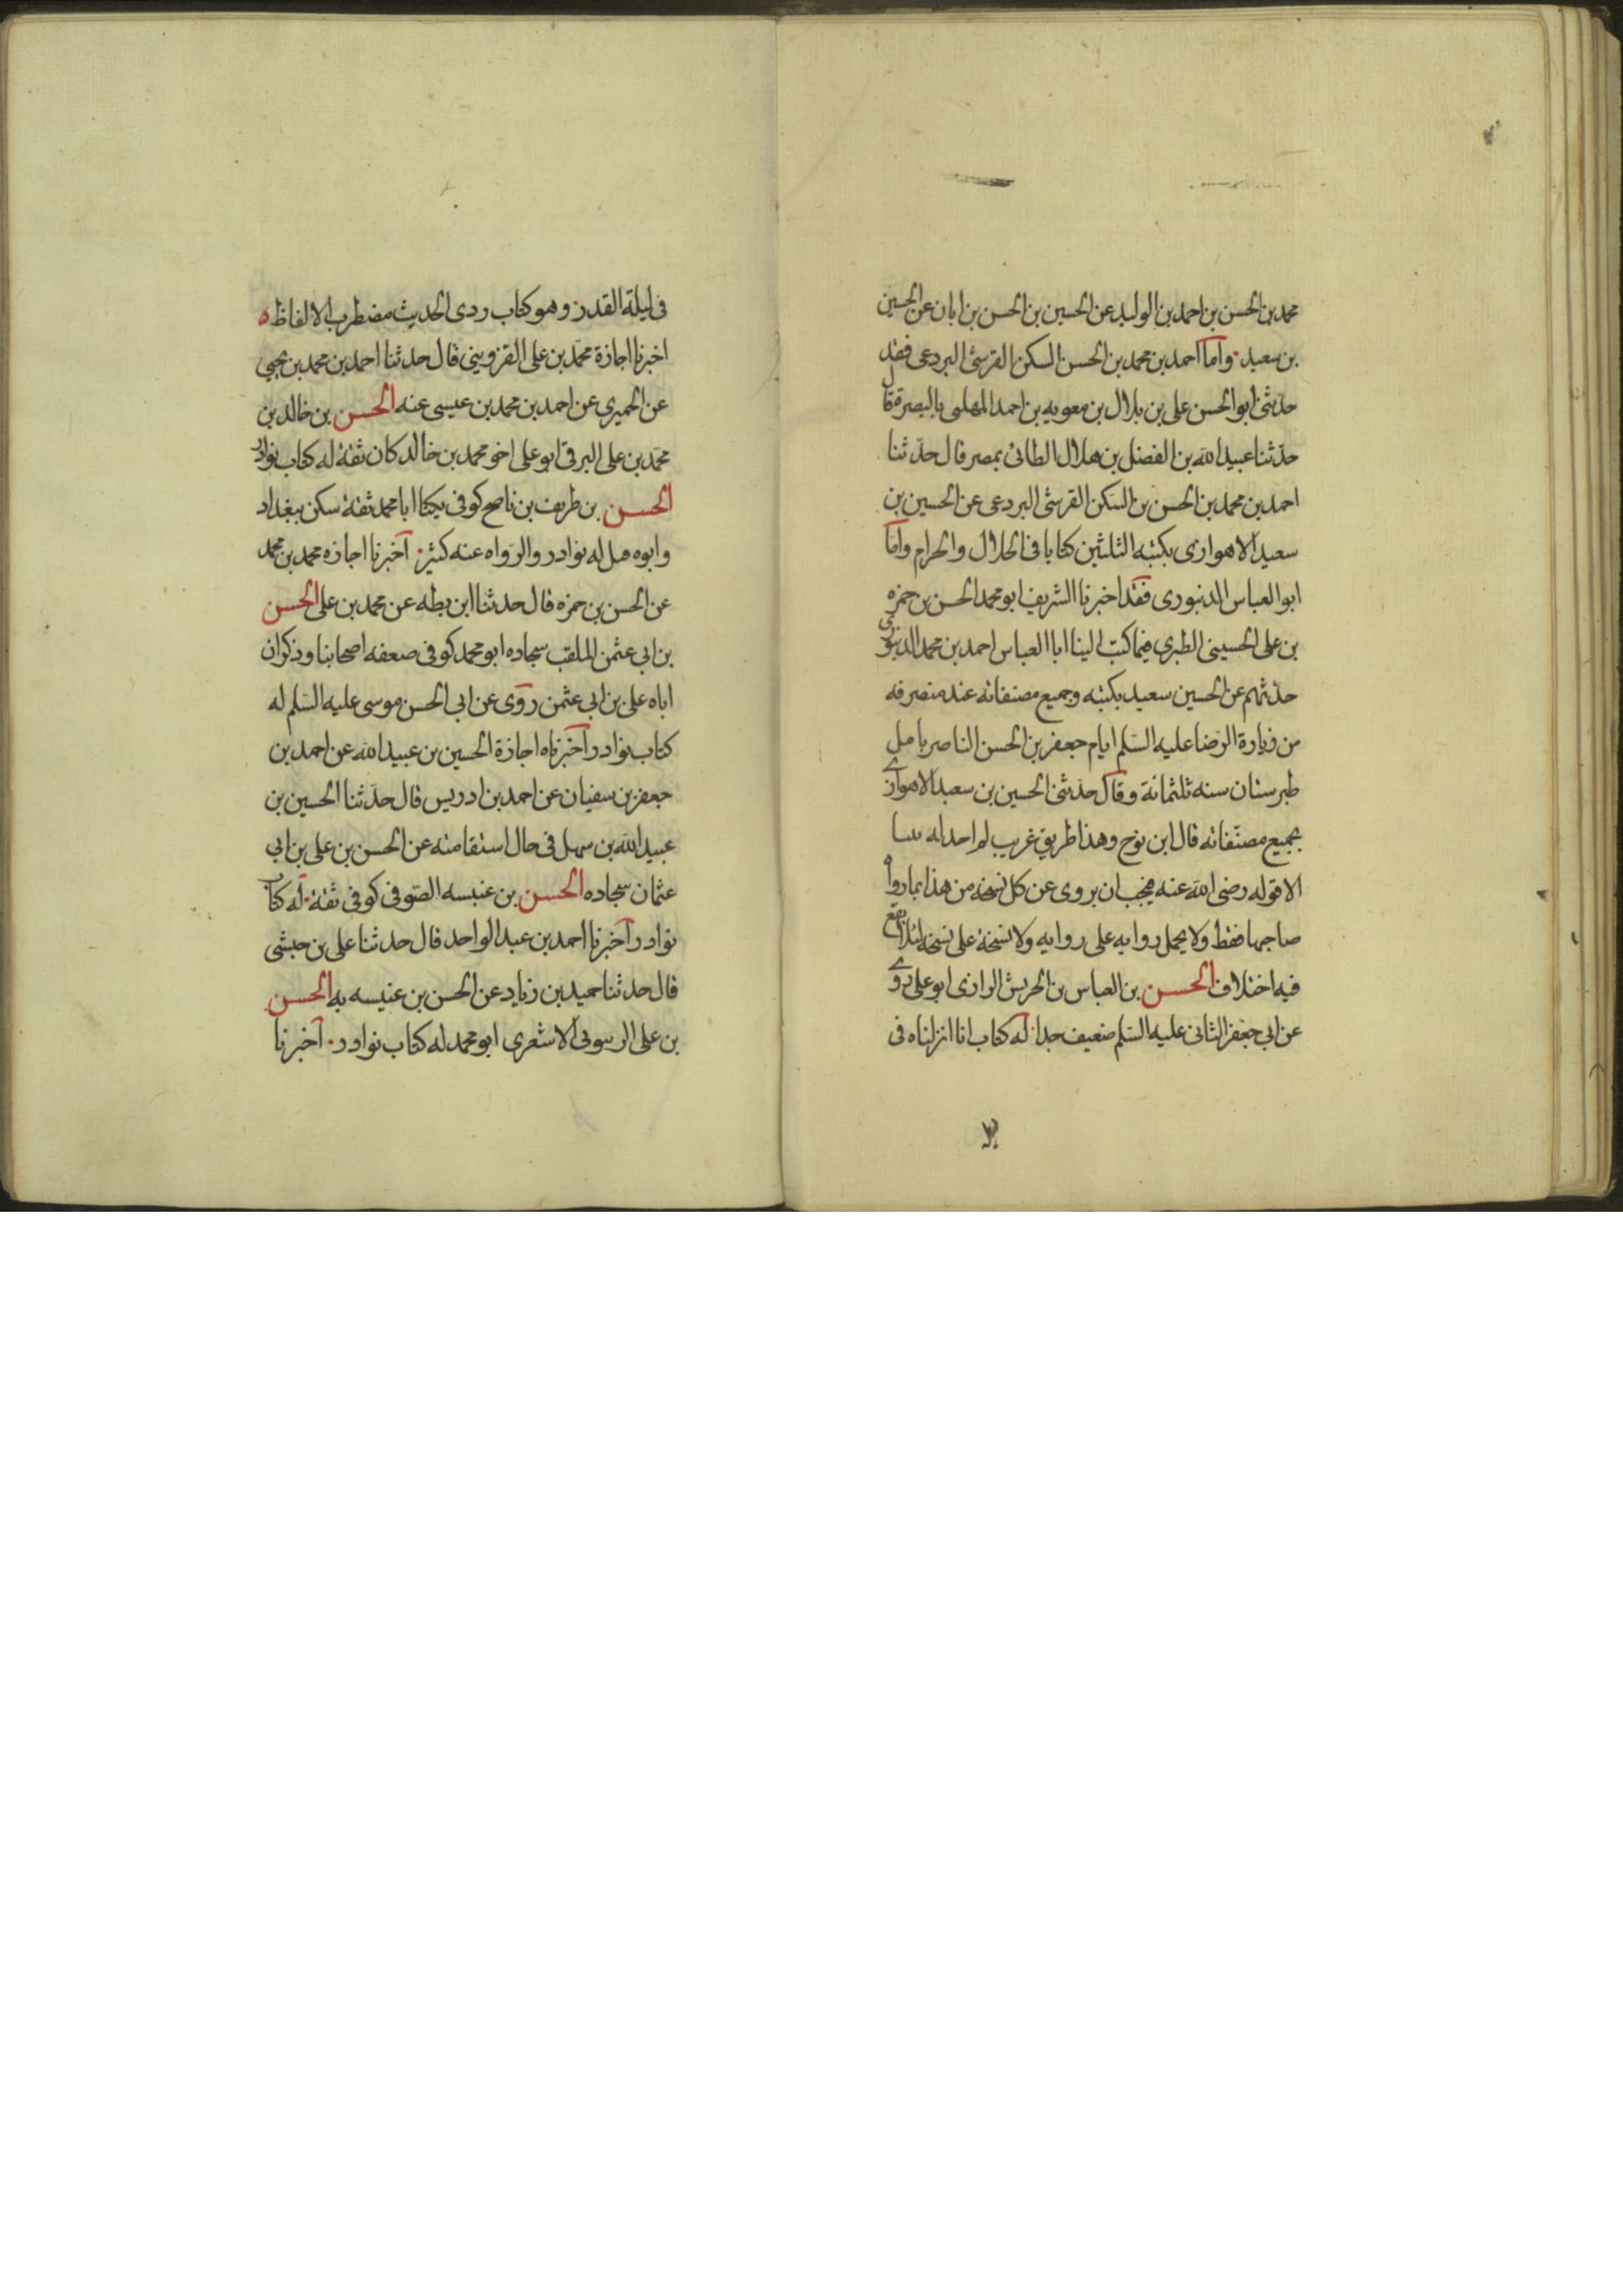 محمد بن الحسن بن احمد بن الوليد عن الحسين بن الحسن بن ابان عن الحسين
بن سعيد واما احمد بن محمد بن الحسن السكن القرشى البردعى فقد
حدثنى ابو الحسن على بن بلال بن معويه بن احمد المهلبى بالبصرة قال
حدثنا عبيد الله بن الفضل بن هلال الطائى بمصر قال حدثنا
احمد بن محمد بن الحسن بن السكن القرشى البردعى عن الحسين بن
سعيد الاهوازى بكتبه الثلثين كتابا فى الحلال والحرام واما
ابو العباس الدنيورى فقد اخبرنا الشريف ابو محمد الحسن بن حمزه
بن على الحسينى الطبرى فيما كتب الينا ابا العباس احمد بن محمد الدينورى
حدثهم عن الحسين سعيد بكتبه وجميع مصنفاته عند منصرفه
من زيارة الرضا عليه السلم ايام جعفر بن الحسن الناصر بامل
طبرستان سنه ثلثمائة وقال حدثنى الحسين بن سعيد الاهوازى
بجميع مصنفاته قال ابن نوح وهذا طريق غريب لم اجد له
الا قوله رضى الله عنه فيجب ان يروى عن كل نسخه من هذا بما رواه
صاحبها فقط ولا يحمل روايه على روايه ولا نسخة على نسخه لئلا يقع
فيه اختلاف الحسن بن العباس بن الحريش الرازى ابو على روى
عن ابى جعفر الثانى عليه السلم ضعيف جدا له كتاب انا انزلناه فى
فى ليلة القدر وهو كتاب ردى الحديث مضطرب الالفاظ ه
اخبرنا اجازة محمد بن على القزوينى قال حدثنا احمد بن محمد بن يحيى
عن الحميرى عن احمد بن محمد بن عيسى عنه الحسن بن خالد بن
محمد بن على البرقى ابو على اخو محمد بن خالد كان ثقة له كتاب نوادر
الحسن بن ظريف بن ناصح كوفى يكنا ابا محمد ثقة سكن ببغداد
وابوه مل له نوادر والرواه عنه كثير اخبرنا اجازه محمد بن محمد
عن الحسن بن حمزه قال حدثنا ابن بطه عن محمد بن على الحسن
بن ابى عثمن الملقب سجاده ابو محمد كوفى ضعفه اصحابنا وذكر ان
اباه على بن ابى عثمن روى عن ابى الحسن موسى عليه السلم له
كتاب نوادر اخبرناه اجازة الحسين بن عبيد الله عن احمد بن
جعفر بن سفيان عن احمد بن ادريس قال حدثنا الحسين بن
عبيد الله بن سهل فى حال استقامته عن الحسن بن على بن ابى
عثمان سجاده الحسن بن عنبسه الصوفى كوفى ثقة له كتاب
نوادر اخبرنا احمد بن عبد الواحد قال حدثنا على بن حبشى
قال حدثنا حميد بن زياد عن الحسن بن عنبسه به الحسن
بن على الاشعرى ابو محمد له كتاب نوادر اخبرنا